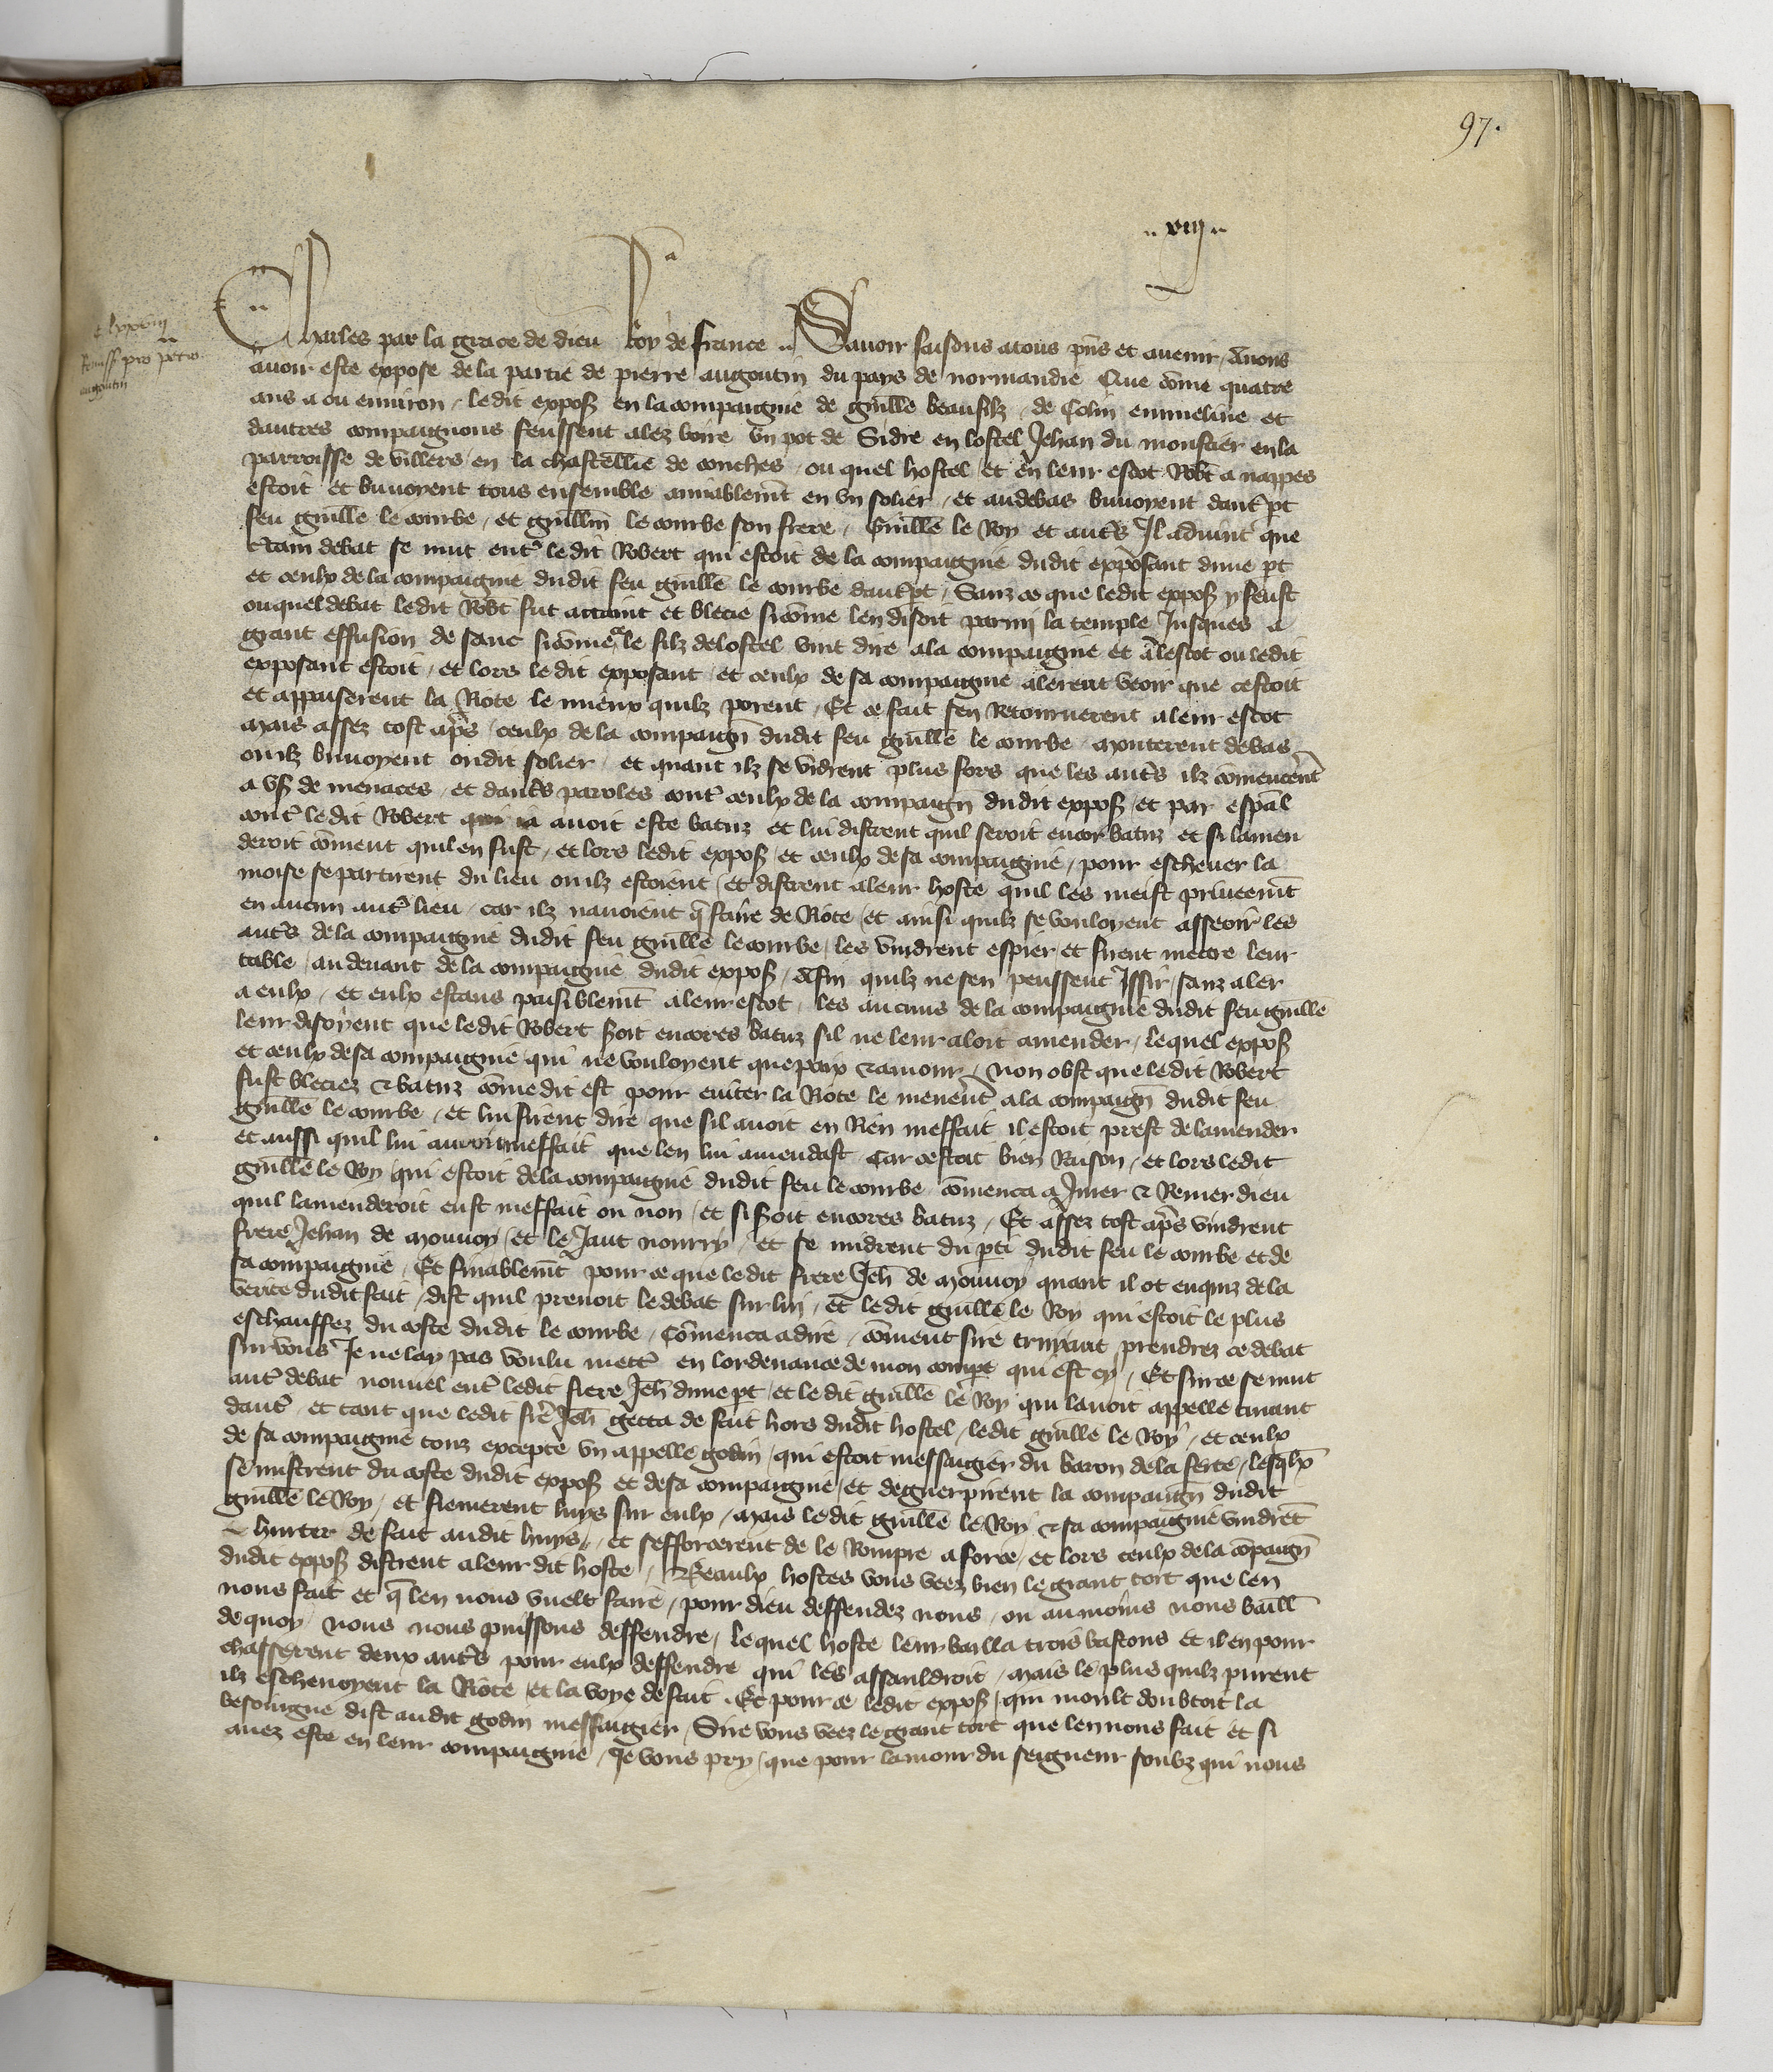 97.
.. viij ..
C lxxviij
Remiss pro petro
augoutin
Charles par la grace de dieu Roy de france .. Savoir faisons a tous pns et avenir / A nous
avoir este expose de la partie de pierre augoutin du pays de normandie Que come quatre
ans a ou environ / ledit exposs en la compaignie de guille beaufilz / de Colin emmeline et
dautres compaignons feussent alez boire un pot de Sidre en lostel Jehan du monstier en la
parroisse de villers / en la chastellie de conches / ou quel hostel et en leur escot Robt a nappes
estoit et buvoyent tous ensemble amiablemt en un solier / et audebas buvoyent daut pt
feu guille le courbe / et guillm le courbe son frere / Guille le Roy et auts Il advint que
ctain debat se mut ent ledit Robert qui estoit de la compaignie dudit exposant dune pt
et ceulx de la compaignie dudit feu guille le courbe daut pt / Sanz ce que ledit exposs y feust
ouquel debat ledit Robt fut attaint et blecie sicome len disoit parmi la temple Jusques a
grant effusion de sanc sicome le filz de lostel vint dire ala compaignie et a lescot ou ledit
exposant estoit / et lors ledit exposant / et ceulx de sa compaignie alerent veoir que cestoit
et appaiserent la Riote le mieux quilz porent / Et ce fait sen Retournerent a leur escot
Mais assez tost aps / ceulx de la compaign dudit feu guille le courbe / monterent debas
ou ilz buvoyent oudit solier / et quant ilz se vidrent plus fors que les auts ilz comencent
a us de menaces / et dauts paroles cont ceulx de la compaign dudit exposs / et par espal
cont ledit Robert qui ia avoit este batuz et lui distrent quil seroit encor batuz et si lamen
deroit coment quil en fust / et lors ledit exposs et ceulx de sa compaignie / pour eschever la
noise se partirent du lieu ou ilz estoient / et distrent a leur hoste quil les meist priveemt
en aucun aut lieu / car ilz navoient q faire de Riote / et ainsi quilz se vouloyent asseoir les
auts de la compaignie dudit feu guille le courbe / les vindrent espier et firent mectre leur
table / au devant de la compaignie dudit exposs / afin quilz ne sen peussent Issir / sanz aler
a eulx / et eulx estans paisiblemt a leur escot / les aucuns de la compaignie dudit feu guille
leur disoyent que ledit Robert soit encores batuz sil ne leur aloit amender / lequel exposs
et ceulx de sa compaignie qui ne vouloyent que paix & amour / Non obst que ledit Robert
fust bleciez & batuz come dit est pour eviter la Riote le menent ala compaign dudit feu
guille le courbe / et lui firent dire que sil avoit en Rien meffait il estoit prest de lamender
et aussi quil lui auroit meffait que len lui amendast Car cestoit bien Raison / et lors ledit
guille le Roy / qui estoit de la compaignie dudit feu le courbe comenca a Jurer & Renier dieu
quil lamenderoit eust meffait ou non / et si soit encores batuz / Et assez tost aps vindrent
frere Jehan de mouvoy / et le Jaut nourry / et se midrent du pti dudit feu le courbe et de
sa compaignie / Et finablemt pour ce que ledit frere Jeh de Mouvoy quant il ot enquiz de la
verite dudit fait / dist quil prenoit le debat sur luy / et ledit guille le Roy qui estoit le plus
eschauffez du coste dudit le courbe / Comenca a dire / coment sire truyant prendrez ce debat
sur vous Je ne lay pas voulu mett en lordenance de mon compe qui est cy / Et sur ce se mut
aut debat nouvel ent ledit frere Jeh dune pt / et ledit guille le Roy qui lavoit appelle truant
daut / et tant que ledit fre Jeh getta de fait hors dudit hostel / ledit guille le Roy / et ceulx
de sa compaignie touz excepte un appelle godin / qui estoit messaigier du baron de la ferte / lesqlx
se mistrent du coste dudit exposs et de sa compaignie / et deguerpirent la compaign dudit
guille le Roy / et fermerent luys sur eulx / Mais ledit guille le Roy & sa compaignie vindret
hurter de fait audit huys / et sefforcerent de le Rompre a force / et lors ceulx de la copaign
dudit exposs distrent a leur dit hoste / Beaulx hostes vous veez bien le grant tort que len
nous fait et q len nous vuelt faire / pour dieu deffendez nous / ou au moins nous baill
de quoy / nous nous puissons deffendre / lequel hoste leur bailla trois bastons et ilz en pour
chasserent deux auts pour eulx deffendre qui les assauldroit / mais le plus quilz purent
ilz eschevoyent la Riote / et la voye de fait . Et pour ce ledit exposs / qui moult doubtoit la
besoingne dist audit godin messaigier / Sire vous veez le grant tort que len nous fait et si
avez este en leur compaignie / Je vous pry / que pour lamour du seigneur soubz qui nous